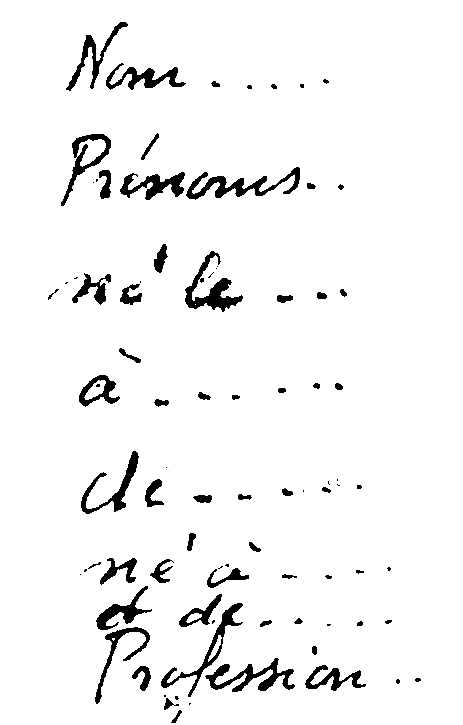 Nom .....
Prénoms..
né le ...
à ......
de ......
né à ....
et de.....
Profession ..